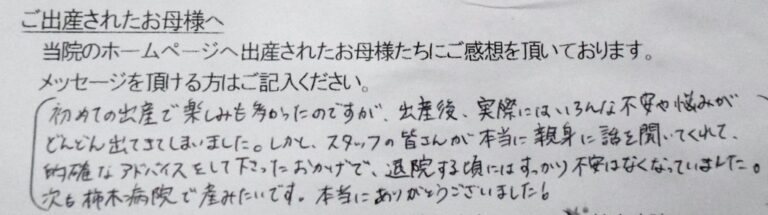 ご出産されたお母様へ
当院のホームページへ出産されたお母様たちにご感想を頂いております。
メッセージを頂ける方はご記入ください。
初めての出産で楽しみも多かったのですが、出産後、実際にはいろんな不安や悩みが
どんどん出てきてしまいました。しかし、スタッフの皆さんが本当に親身に話を聞いてくれて、
的確なアドバイスをして下さったおかげで、退院する頃にはすっかり不安はなくなっていました。
次も柿木病院で産みたいです。本当にありがとうございました!